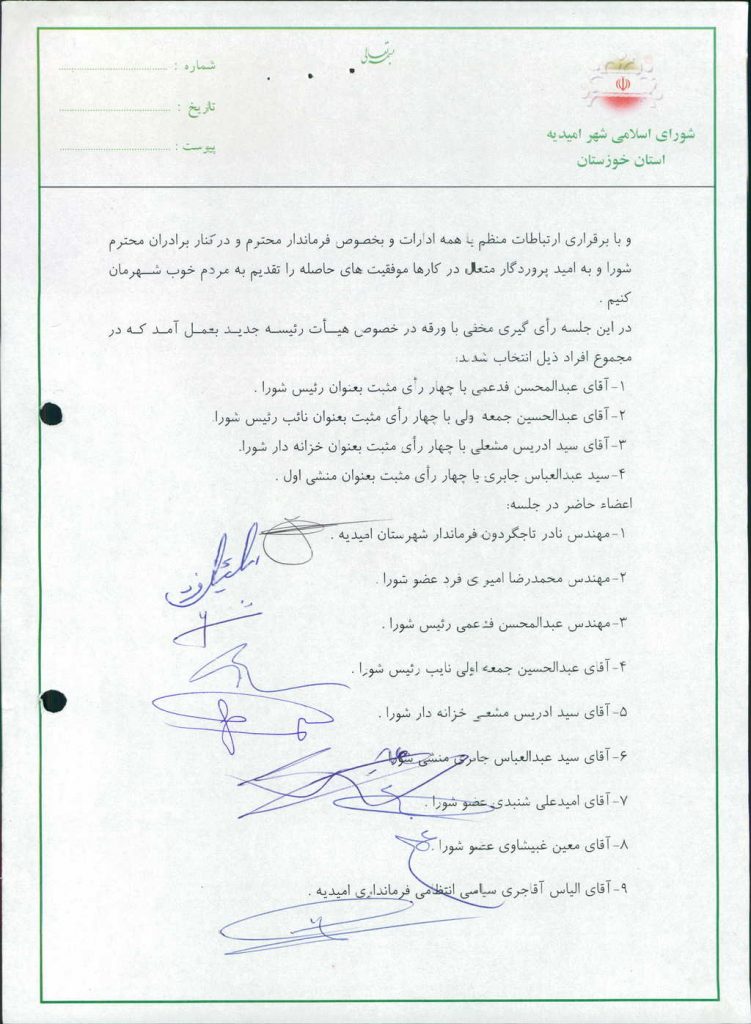 بسمه تعالی
شماره :
تاریخ :
پیوست :
شورای اسلامی شهر امیدیه
استان خوزستان
و با برقراری ارتباطات منظم با همه ادارات و بخصوص فرماندار محترم و درکنار برادران محترم
شورا و به امید پروردگار متعال در کارها موفقیت های حاصله را تقدیم به مردم خوب شهرمان
کنیم .
در این جلسه رأی گیری مخفی با ورقه در خصوص هیأت رئیسه جدید بعمل آمد که در
مجموع افراد ذیل انتخاب شدند:
۱-آقای عبدالمحسن فدعمی با چهار رأی مثبت بعنوان رئیس شورا .
۲-آقای عبدالحسین جمعه ولی با چهار رأی مثبت بعنوان نائب رئیس شورا.
۳-آقای سید ادریس مشعلی با چهار رأی مثبت بعنوان خزانه دار شورا.
۴-سید عبدالعباس جابری با چهار رأی مثبت بعنوان منشی اول .
اعضاء حاضر در جلسه:
۱-مهندس نادر تاجگردون فرماندار شهرستان امیدیه .
۲-مهندس محمدرضا امیری فرد عضو شورا .
۳-مهندس عبدالمحسن فدعمی رئیس شورا .
۴-آقای عبدالحسین جمعه اولی نایب رئیس شورا .
۵-آقای سید ادریس مشعی خزانه دار شورا .
۶-آقای سید عبدالعباس جابری منشی شورا
۷-آقای امیدعلی شنبدی عضو شورا .
۸-آقای معین غبیشاوی عضو شورا .
۹-آقای الیاس آقاجری سیاسی انتظامی فرمانداری امیدیه .